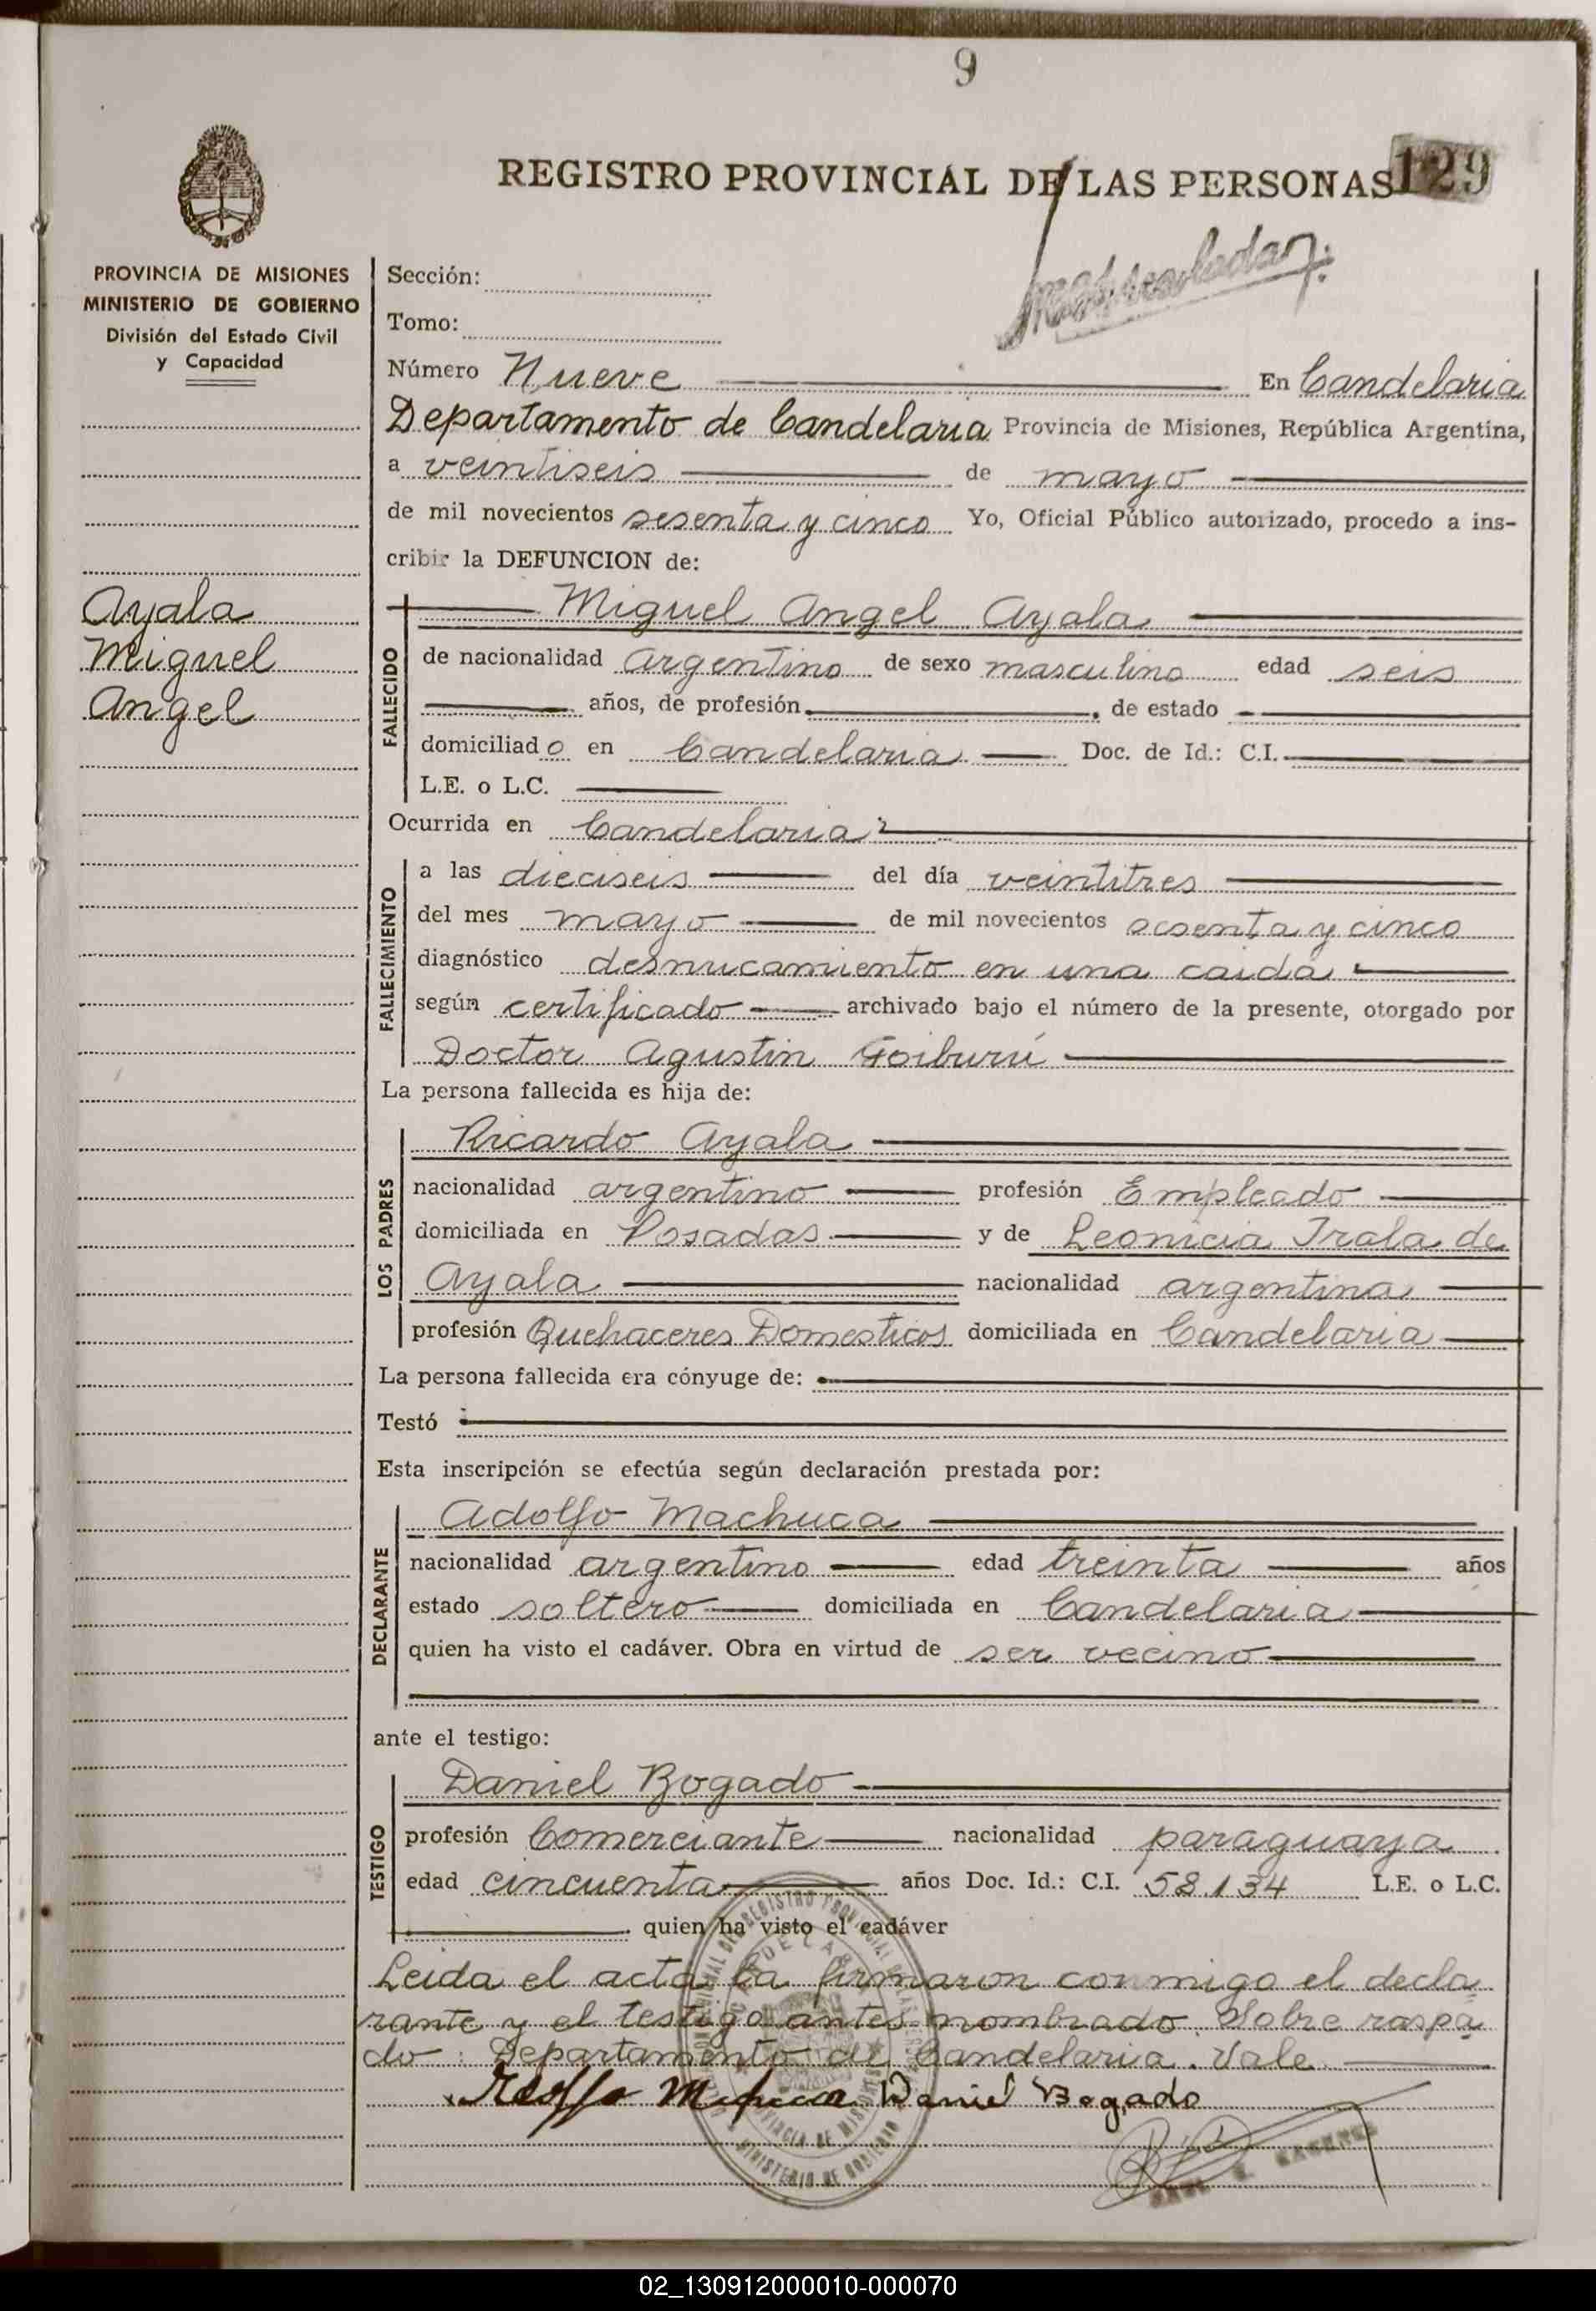 9
REGISTRO PROVINCIAL DE LAS PERSONAS 129
PROVINCIA DE MISIONES
MINISTERIO DE GOBIERNO
División del Estado Civil
y Capacidad
Ayala
Miguel
Angel
Sección:
Tomo:
Número Nueve En Candelaria
Departamento de Candelaria Provincia de Misiones, República Argentina,
a veintiseis de mayo
de mil novecientos sesenta y cinco Yo, Oficial Público autorizado, procedo a ins-
cribir la DEFUNCION de:
FALLECIDO
Miguel Angel Ayala
de nacionalidad argentino de sexo masculino edad seis
años, de profesión , de estado
domiciliado en Candelaria Doc. de Id.: C.I.
L.E. o L.C.
Ocurrida en Candelaria
FALLECIMIENTO
a las dieciseis del día veintitres
del mes mayo de mil novecientos sesenta y cinco
diagnóstico desnucamiento en una caida
según certificado archivado bajo el número de la presente, otorgado por
Doctor Agustin Goiburú
La persona fallecida es hija de:
LOS PADRES
Ricardo Ayala
nacionalidad argentino profesión Empleado
domiciliada en Posadas y de Leonicia Irala de
Ayala nacionalidad argentina
profesión Quehaceres Domesticos domiciliada en Candelaria
La persona fallecida era cónyuge de:
Testó
Esta inscripción se efectúa según declaración prestada por:
DECLARANTE
Adolfo Machuca
nacionalidad argentino edad treinta años
estado soltero domiciliada en Candelaria
quien ha visto el cadáver. Obra en virtud de ser vecino
ante el testigo:
TESTIGO
Daniel Bogado
profesión Comerciante nacionalidad paraguaya
edad cincuenta años Doc. Id.: C.I. 58.134 L.E. o L.C.
quien ha visto el cadáver
Leida el acta la firmaron conmigo el decla
rante y el testigo antes nombrado. Sobre raspa
do: Departamento de Candelaria. Vale
Daniel Bogado
PROVINCIA DE MISIONES
MINISTERIO DE GOBIERNO
02_130912000010-000070